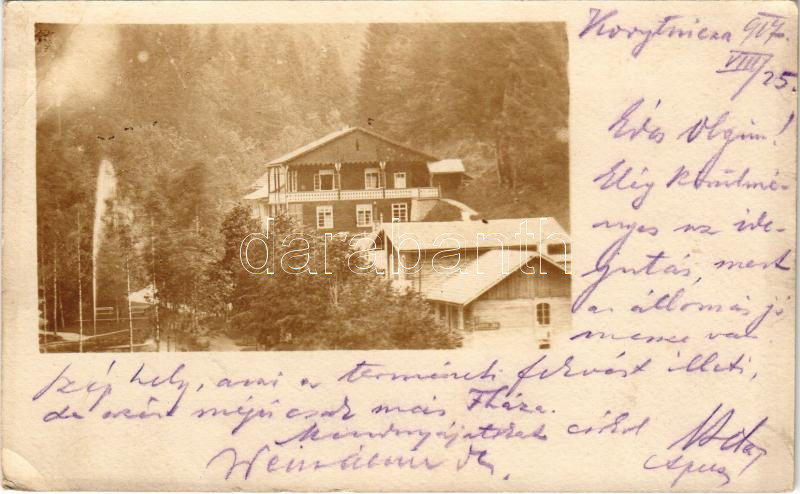 Korytnicza 917.
VIII/25.
Édes Olgám!
Elég körülmé-
nyes az ide-
jutás, mert
az állomás jó
messze van
szép hely, ami a természeti fekvést illeti,
de azért mégis csak más
Mindnyájatokat csókol
Apus
darabanth